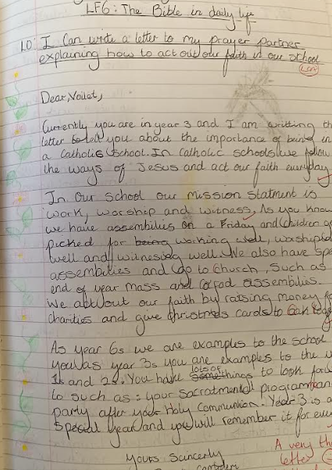 LF6: The Bible in daily life
1.0 I Can write a letter to my prayer partner
explaining how to act out our faith in our school
Dear,
Currently you are in year 3 and I am writting th
letter to tell you about the importance of being in
a Catholic School. In Catholic schools we follow
the ways of Jesus and act our faith everyday
In Our School our mission statment is
work, worship and witness, As you know
we have assemblies on a Friday and Children ar
picked for being working well, worshiping
well and witnessing well. We also have spe
assemblies and Go to Church, Such as
end of year mass and Cafod assemblies.
We act out our faith by raising money fo
charities and give christmas cards to
As year 6s we are examples to the School
you as year 3s you are examples to the
1s and 2s. You have lots of things to look for
to such as: your Sacramental programme
party after your Holy Communion. Year 3 is a
special year and you will remember it for ever
Yours Sincerly
A very th
letter